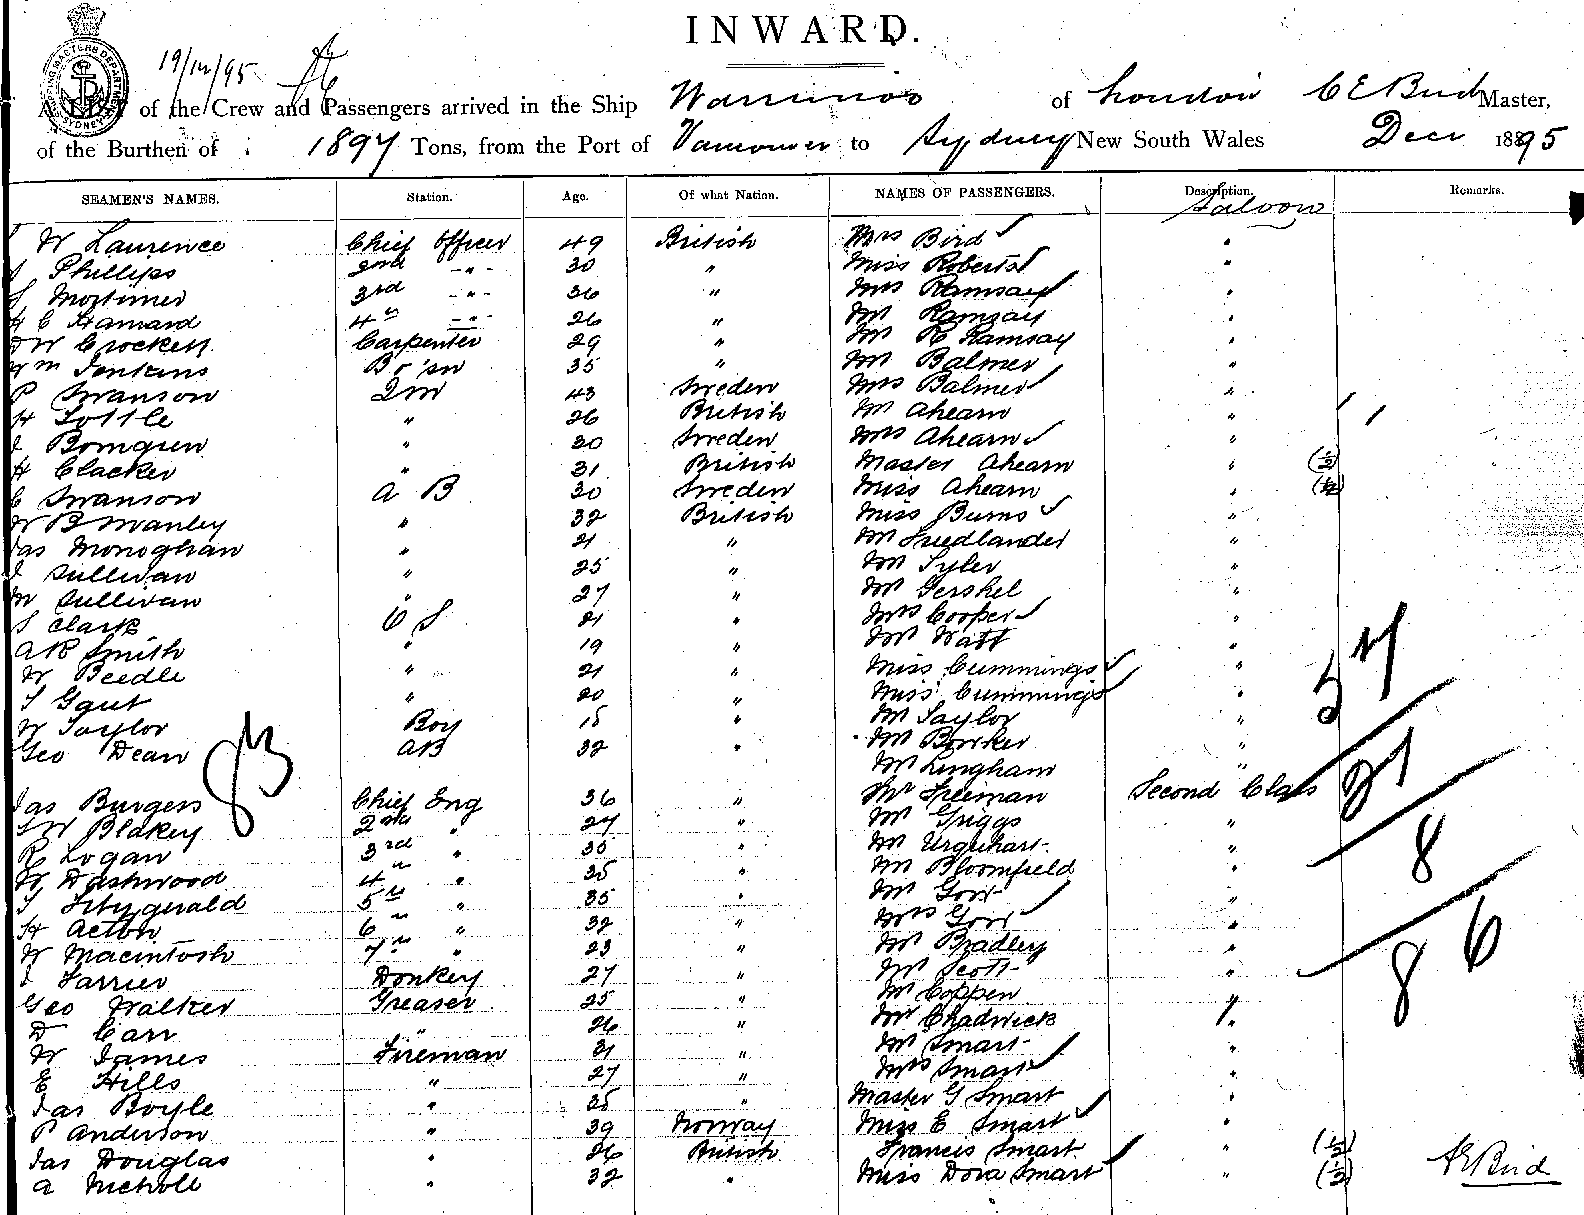 INWARD.
19/12/95
A LIST of the Crew and Passengers arrived in the Ship Warrimoo of London C E Bird Master,
of the Burthen of 1897 Tons, from the Port of Vancouver to Sydney New South Wales Decr 1895
SEAMEN'S NAMES. Station. Age. Of what Nation. NAMES OF PASSENGERS. Description. Remarks.
Saloon
W Laurence Chief Officer 49 British Mrs Bird "
J Phillips 2nd -"- 30 " Miss Roberts "
S Mortimer 3rd -"- 36 " Mrs Ramsay "
H C 4th -"- 26 " Mr Ramsay "
W Crockett Carpenter 29 " Mr R Ramsay "
Wm Jenkins Bo'sn 35 " Mr Balmer "
P Swanson QM 43 Sweden Mrs Balmer "
H Tottle " 26 British Mr Ahearn "
J Bomgren " 30 Sweden Mrs Ahearn "
H Clacker " 31 British Master Ahearn " (½)
C Swanson A B 30 Sweden Miss Ahearn " (½)
W B Manley " 32 British Miss Burns "
Jas Monoghan " 21 " Mr Friedlander "
J Sullivan " 25 " Mr Tyler "
M Sullivan " 27 " Mr Gershel "
S Clark O S 21 " Mrs Cooper "
A R Smith " 19 " Mr Watt "
W Beedle " 21 " Miss Cummings "
T Gaut " 20 " Miss Cummings "
W Taylor Boy 15 " Mr Taylor "
Geo Dean AB 32 " Mr Bowker "
Mr Lingham "
83
57
Jas Burgess Chief Eng 36 " Mr Freeman Second Class 21
W Blakey 2nd " 27 " Mr Griggs "
R Logan 3rd " 35 " Mr Urquhart "
8
W Dashwood 4th " 35 " Mr Bloomfield "
T Fitzgerald 5th " 35 " Mr Gow "
H Acton 6th " 32 " Mrs Gow "
W Macintosh 7th " 23 " Mr Bradley "
86
J Farrier Donkey 27 " Mr Scott "
Geo Walker Greaser 25 " Mr Coppen "
D Carr " 26 " Mr Chadwick "
W James Fireman 31 " Mr Smart "
E Hills " 27 " Mrs Smart "
Jas Boyle " 25 " Master G Smart "
P Anderson " 39 Norway Miss E Smart "
Jas Douglas " 26 British Francis Smart " (½)
A Nicholl " 32 " Miss Dora Smart " (½)
C E Bird